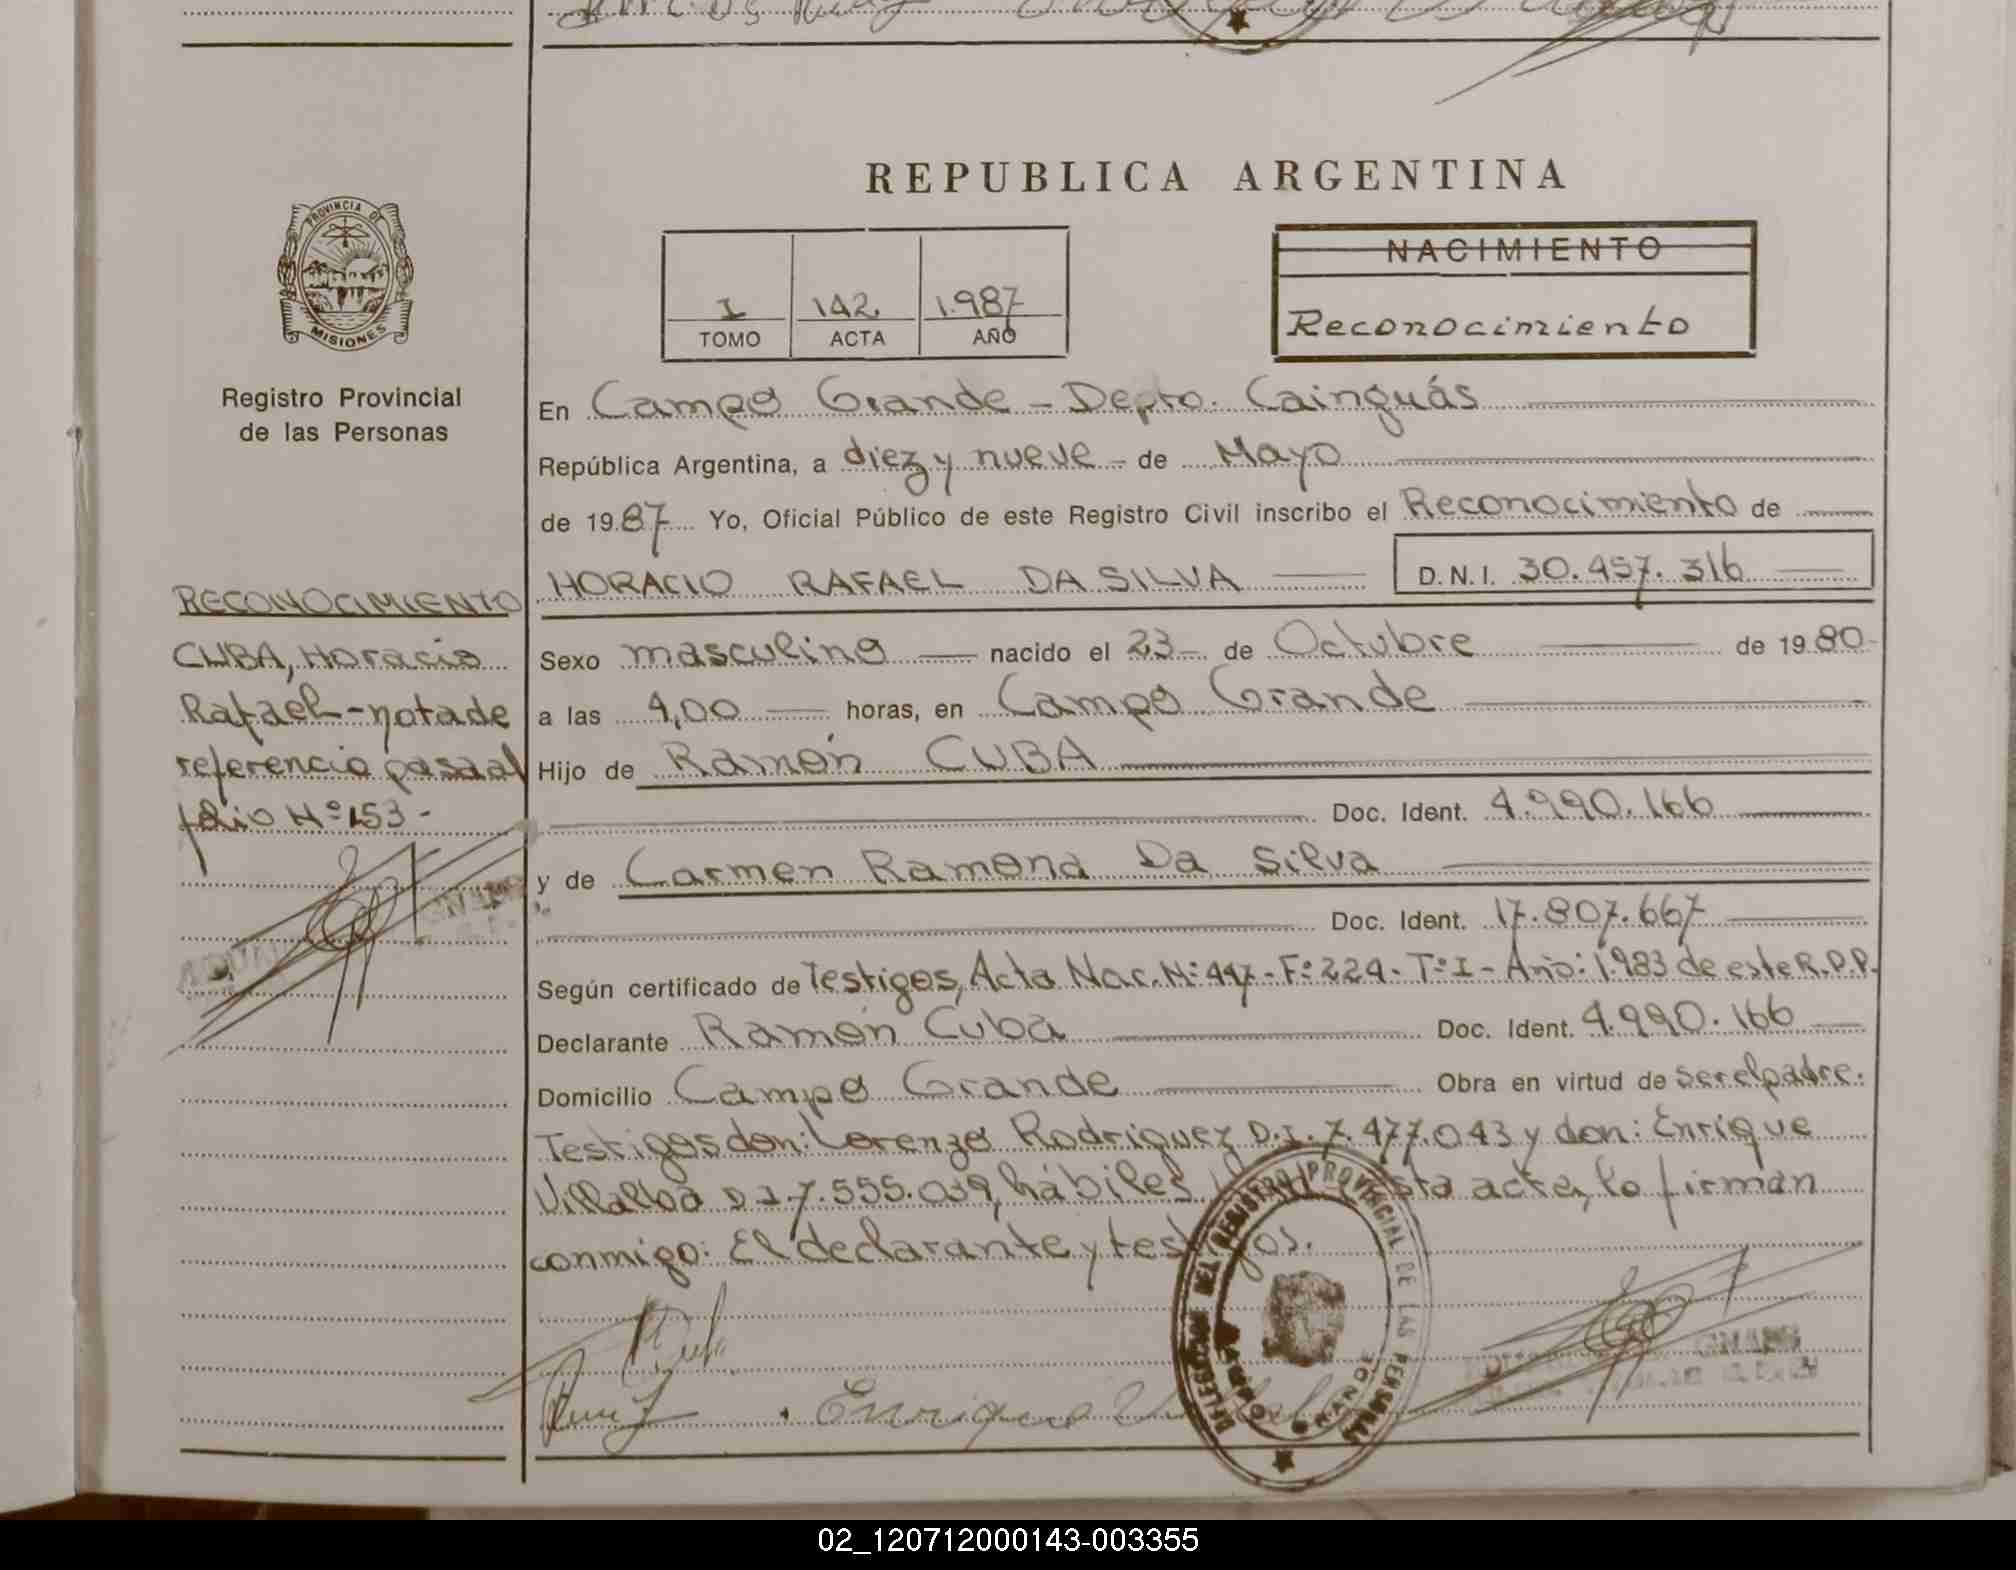 REPUBLICA ARGENTINA
PROVINCIA DE
MISIONES
Registro Provincial
de las Personas
I 142 1.987
TOMO ACTA AÑO
NACIMIENTO
Reconocimiento
En Campo Grande - Depto. Cainguás
República Argentina, a diez y nueve - de Mayo
de 1987 Yo, Oficial Público de este Registro Civil inscribo el Reconocimiento de
HORACIO RAFAEL DA SILVA D.N.I. 30.457.316
RECONOCIMIENTO
CUBA, Horacio
Rafael - nota de
referencia pasa al
folio Nº 153 -
Sexo masculino nacido el 23 de Octubre de 1980
a las 4,00 horas, en Campo Grande
Hijo de Ramón CUBA
Doc. Ident. 4.990.166
y de Carmen Ramona Da Silva
Doc. Ident. 17.807.667
Según certificado de Testigos, Acta Nac. Nº: 447 - Fº: 224 - Tº: I - Año: 1.983 de este R.P.P.
Declarante Ramón Cuba Doc. Ident. 4.990.166
Domicilio Campo Grande Obra en virtud de ser el padre.
Testigos don: Lorenzo Rodriguez D.I. 7.477.043 y don: Enrique
Villalba D.I. 7.555.039, hábiles esta acta, lo firman
conmigo: El declarante y testigos.
DELEGACION DEL REGISTRO PROVINCIAL DE LAS PERSONAS
CAMPO GRANDE
Enrique
02_120712000143-003355